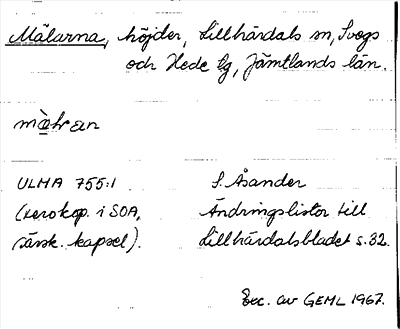 Mälarna, höjder, Lillhärdals sn, Svegs
och Hede tg, Jämtlands län.
mæ̀hran
ULMA 755:1
(xerokop. i SOA,
särsk. kapsel).
S. Åsander
Ändringslistor till
Lillhärdalsbladet s. 32.
Exc. av GEML 1967.